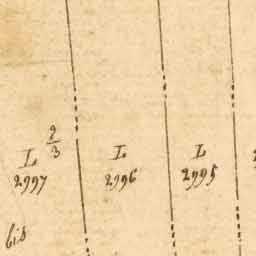 2/3
L L L
2997 2996 2995
bis